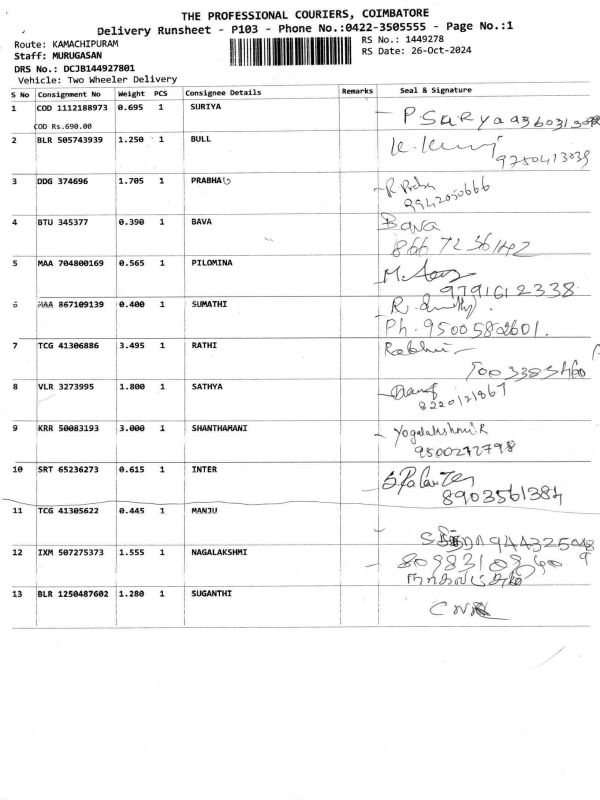 THE PROFESSIONAL COURIERS, COIMBATORE
Delivery Runsheet - P103 - Phone No.:0422-3505555 - Page No.:1
Route: KAMACHIPURAM RS No.: 1449278
Staff: MURUGASAN RS Date: 26-Oct-2024
DRS No.: DCJB144927801
Vehicle: Two Wheeler Delivery
S No Consignment No Weight PCS Consignee Details Remarks Seal & Signature
1 COD 1112188973 0.695 1 SURIYA
P SURYA
COD Rs.690.00
2 BLR 505743939 1.250 1 BULL
9750413039
3 DDG 374696 1.705 1 PRABHAG
9942050666
4 BTU 345377 0.390 1 BAVA Bava
866 7236142
5 MAA 704800169 0.565 1 PILOMINA
9791612338
6 MAA 867109139 0.400 1 SUMATHI
Ph. 9500582601.
7 TCG 41306886 3.495 1 RATHI
8 VLR 3273995 1.800 1 SATHYA
8220121867
9 KRR 50083193 3.000 1 SHANTHAMANI Yogalakshmi R
9500272798
10 SRT 65236273 0.615 1 INTER
8903561384
11 TCG 41305622 0.445 1 MANJU
12 IXM 507275373 1.555 1 NAGALAKSHMI
13 BLR 1250487602 1.280 1 SUGANTHI